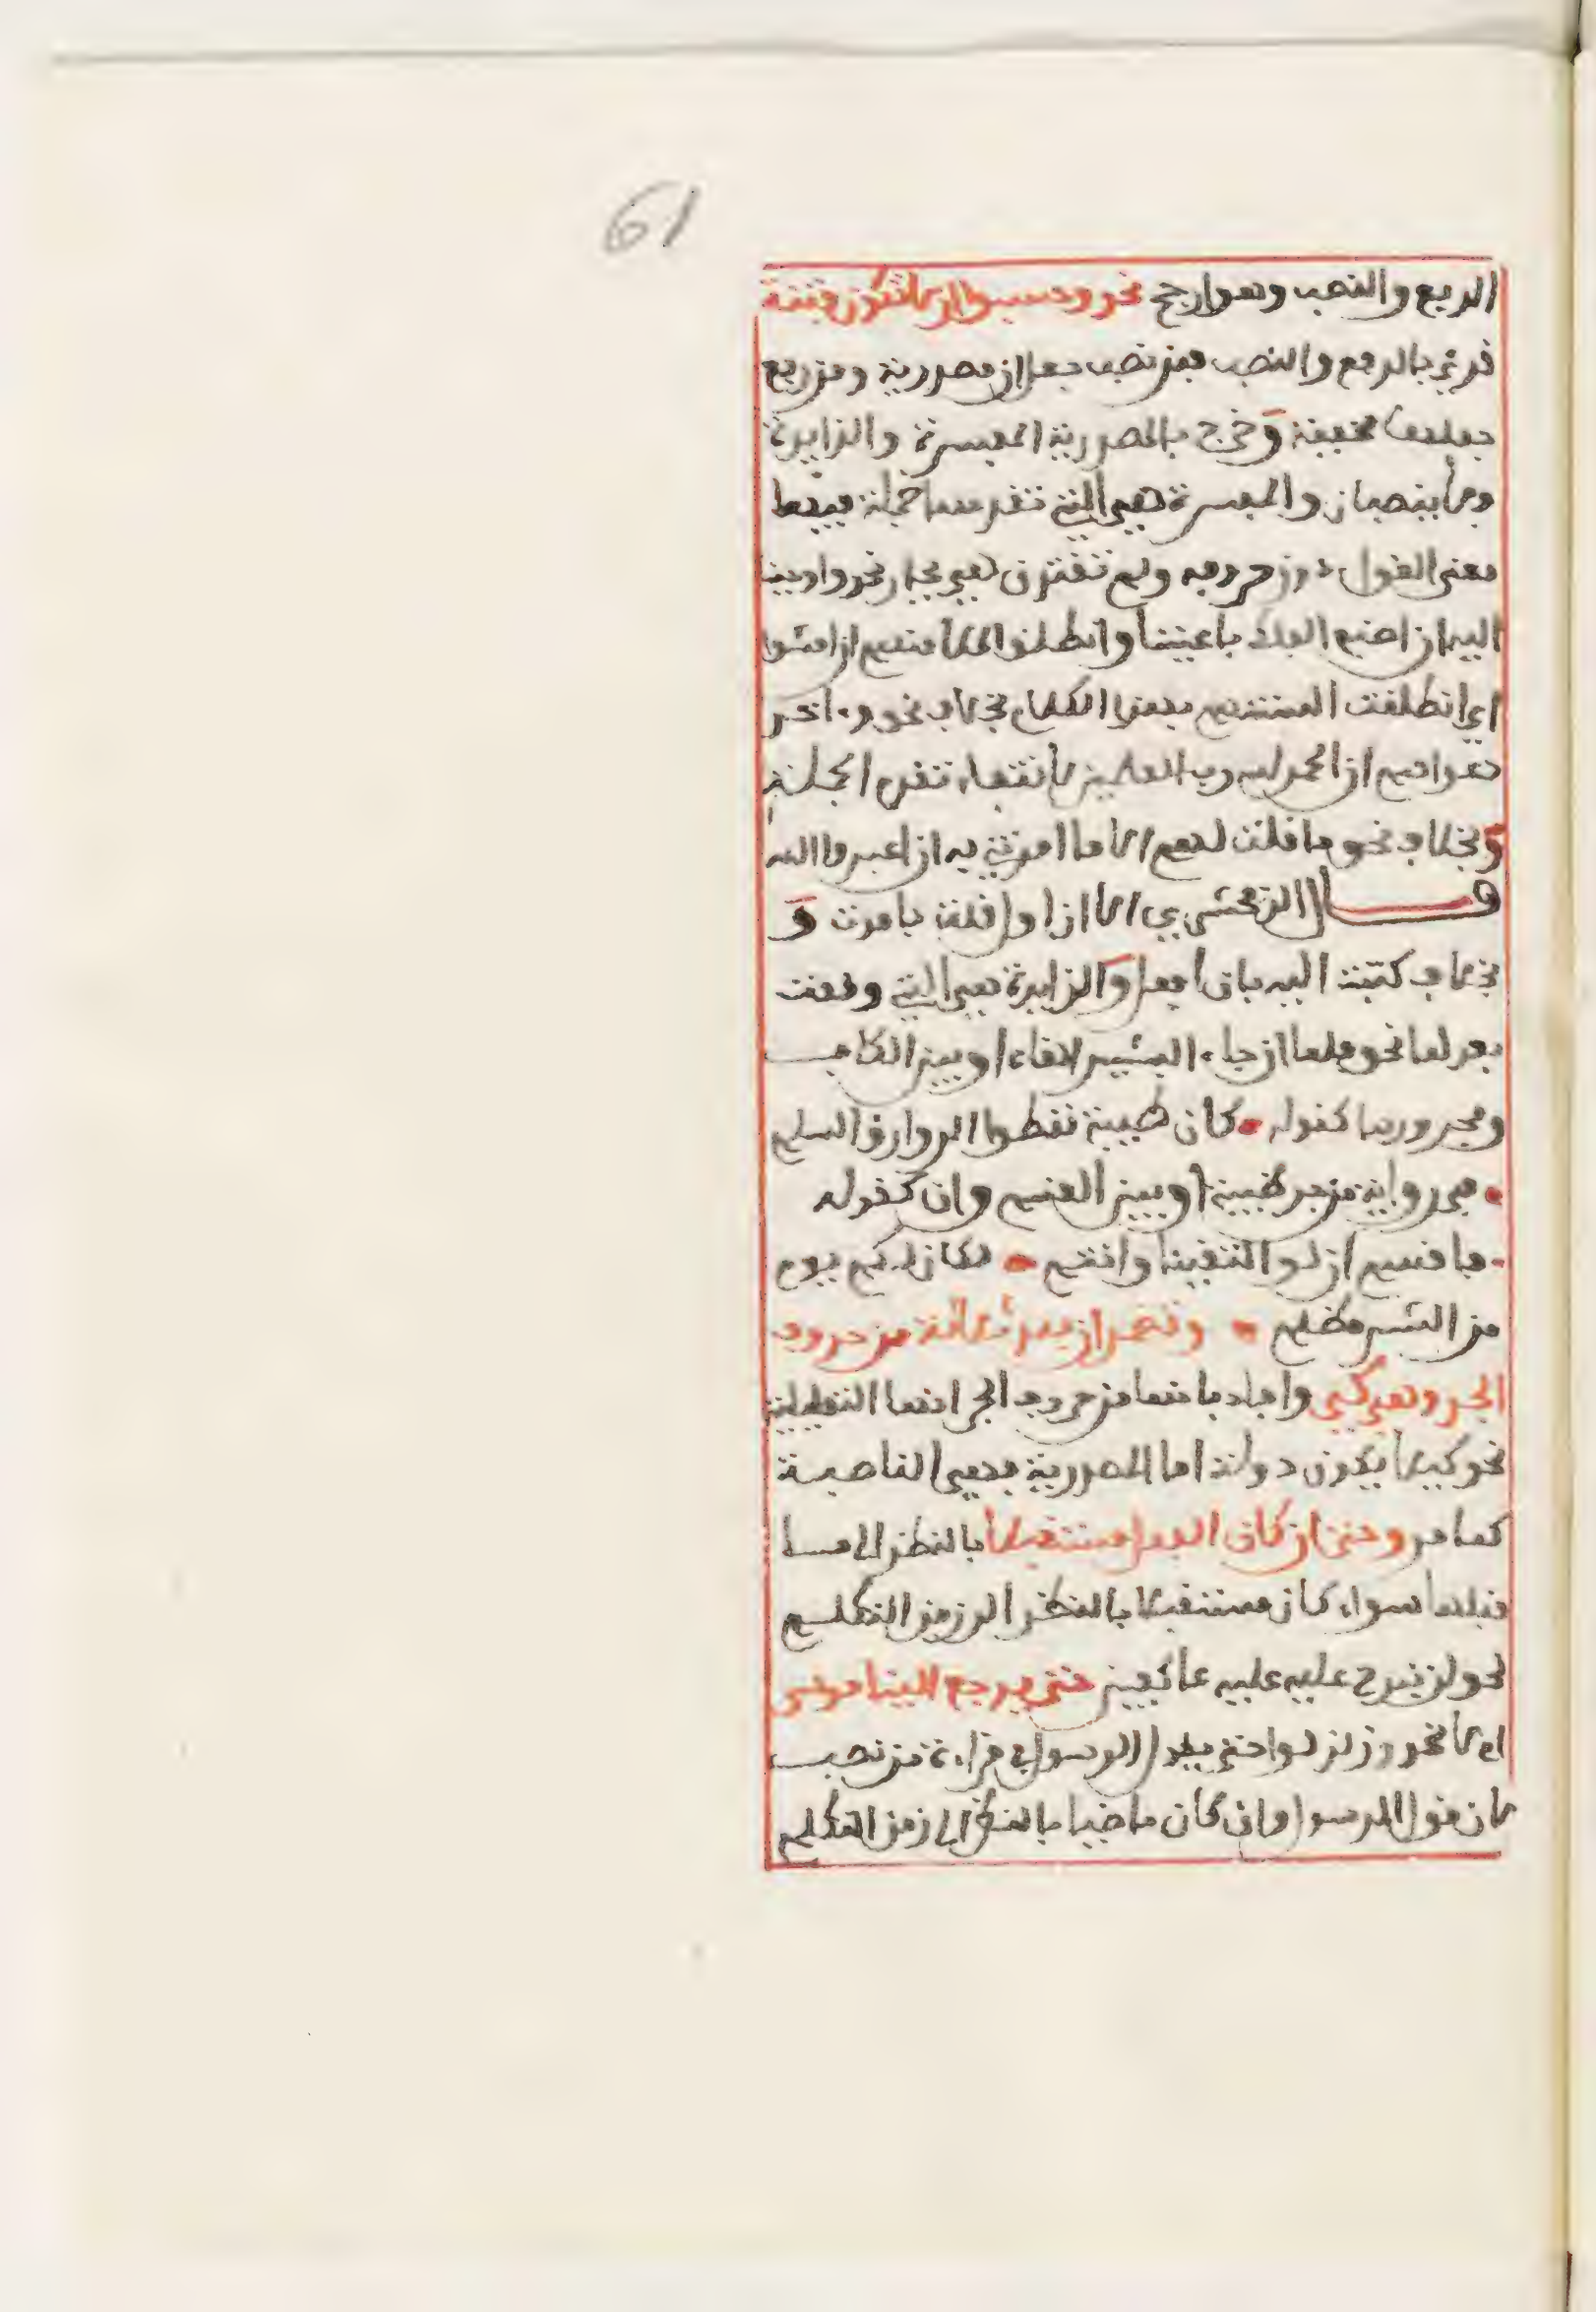 61
الرفع والنصب وهو ارجح نحو وحسبوا ان لا تكون فتنة
قرئ بالرفع والنصب فمن نصب جعل ان مصدرية ومن رفع
جعلها مخففة وخرج بالمصدرية المفسرة والزايدة
ولا ينصبان والمفسرة هي التي تقدمها جملة فيها
معنى القول دون حروفه ولم تقترن بجار نحو واوحينا
اليه ان اصنع الفلك باعيننا وانطلق الملأ منهم ان امشوا
اي انطلقت السنتهم بهذا الكلام بخلاف نحو واخر
دعواهم ان الحمد لله رب العلمين لانتفاء تقدم الجملة
وبخلاف نحو ما قلت لهم الا ما امرتني به ان اعبدوا الله
قال الزمخشري الا ان اول قلت بامرت و
بخلاف كتبت اليه بان افعل والزايدة هي التي وقعت
بعد لما نحو فلما ان جاء البشير القاه او بين الكاف
ومجرورها كقوله كان ظبية تعطوا الى وارق السلم
في رواية من جر ظبية او بين القسم وان كقوله
فاقسم ان لو التقينا وانتم لكان لكم يوم
من الشر مظلم وتضمر ان بعد ثلاثة من حروف
الجر وهي كي وافاد بانها من حروف الجر انها التعليلية
نحو كيلا يكون دولة اما المصدرية فهي الناصبة
كما مر وحتى ان كان الفعل مستقبلا بالنظر الى ما
قبلها سواء كان مستقبلا بالنظر الى زمن التكلم
نحو لن نبرح عليه عليه عاكفين حتى يرجع الينا موسى
ام لا نحو وزلزلوا حتى يقول الرسول في قراءة من نصب
لان قول الرسول وان كان ماضيا بالنظر الى زمن التكلم